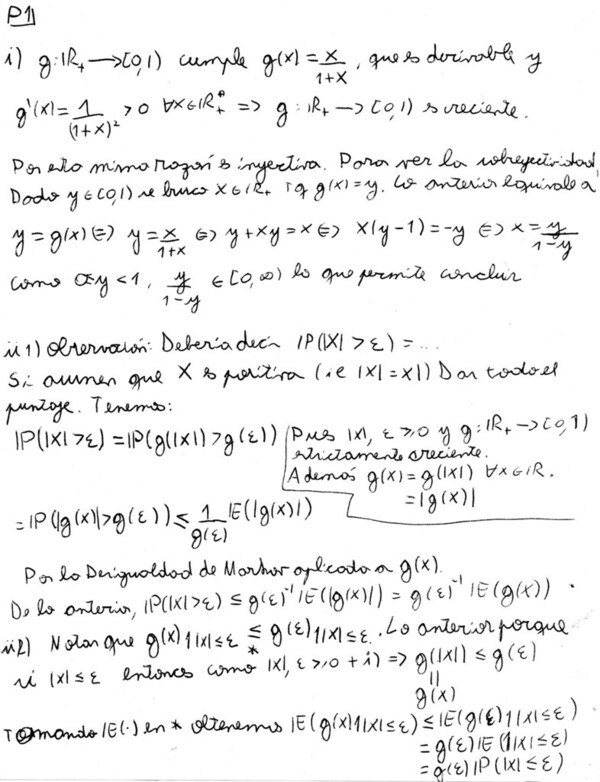 P1
i) g: ℝ₊ → [0,1) cumple g(x) = x/(1+x), que es derivable y
g'(x) = 1/(1+x)² > 0 ∀x∈ℝ₊* ⇒ g: ℝ₊ → [0,1) es creciente.
Por ello misma razón es inyectiva. Para ver la sobreyectividad,
Dado y∈[0,1) se busca x∈ℝ₊ tq g(x)=y. Lo anterior equivale a
y = g(x) ⇔ y = x/(1+x) ⇔ y+xy = x ⇔ x(y-1) = -y ⇔ x = y/(1-y)
como 0≤y<1, y/(1-y) ∈ [0,∞) lo que permite concluir
ii1) Observación: Debería decir ℙ(|X|>ε) = ...
Si asumen que X es positiva (ie |X|=X|) Dar todo el
puntaje. Tenemos:
ℙ(|X|>ε) = ℙ(g(|X|)>g(ε))
Pues |x|, ε≥0 y g: ℝ₊ → [0,1)
estrictamente creciente.
Además g(x) = g(|x|) ∀x∈ℝ.
= |g(x)|
= ℙ(|g(x)|>g(ε)) ≤ 1/g(ε) 𝔼(|g(x)|)
Por la Desigualdad de Markov aplicada a g(x).
De lo anterior, ℙ(|X|>ε) ≤ g(ε)⁻¹ 𝔼(|g(x)|) = g(ε)⁻¹ 𝔼(g(x)) .
ii2) Notar que g(x)1|x|≤ε ≤* g(ε)1|x|≤ε. Lo anterior porque
si |x|≤ε entonces como |x|, ε≥0 + i) ⇒ g(|x|) ≤ g(ε)
||
g(x)
Tomando 𝔼(·) en * obtenemos 𝔼(g(x)1|x|≤ε) ≤ 𝔼(g(ε)1|x|≤ε)
= g(ε)𝔼(1|x|≤ε)
= g(ε)ℙ(|X|≤ε)